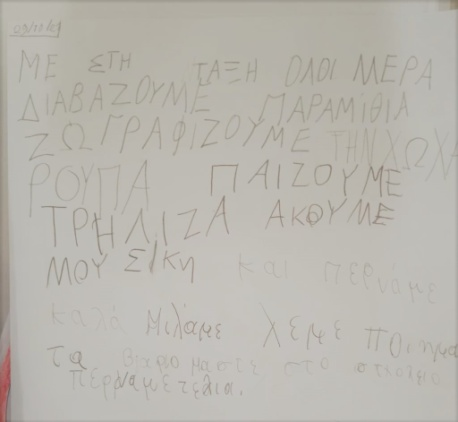 09/10/
ΜΕ ΣΤΗ ΤΑΞΗ ΟΛΟΙ ΜΕΡΑ
ΔΙΑΒΑΖΟΥΜΕ ΠΑΡΑΜΙΘΙΑ
ΖΩΓΡΑΦΙΖΟΥΜΕ ΤΗΝ ΧΩΧΑ
ΡΟΥΠΑ ΠΑΙΖΟΥΜΕ
ΤΡΗΛΙΖΑ ΑΚΟΥΜΕ
ΜΟΥΣΙΚη και περνάμε
καλά Μιλάμε λέμε ποιημα
τα στο
περνάμε τελια.